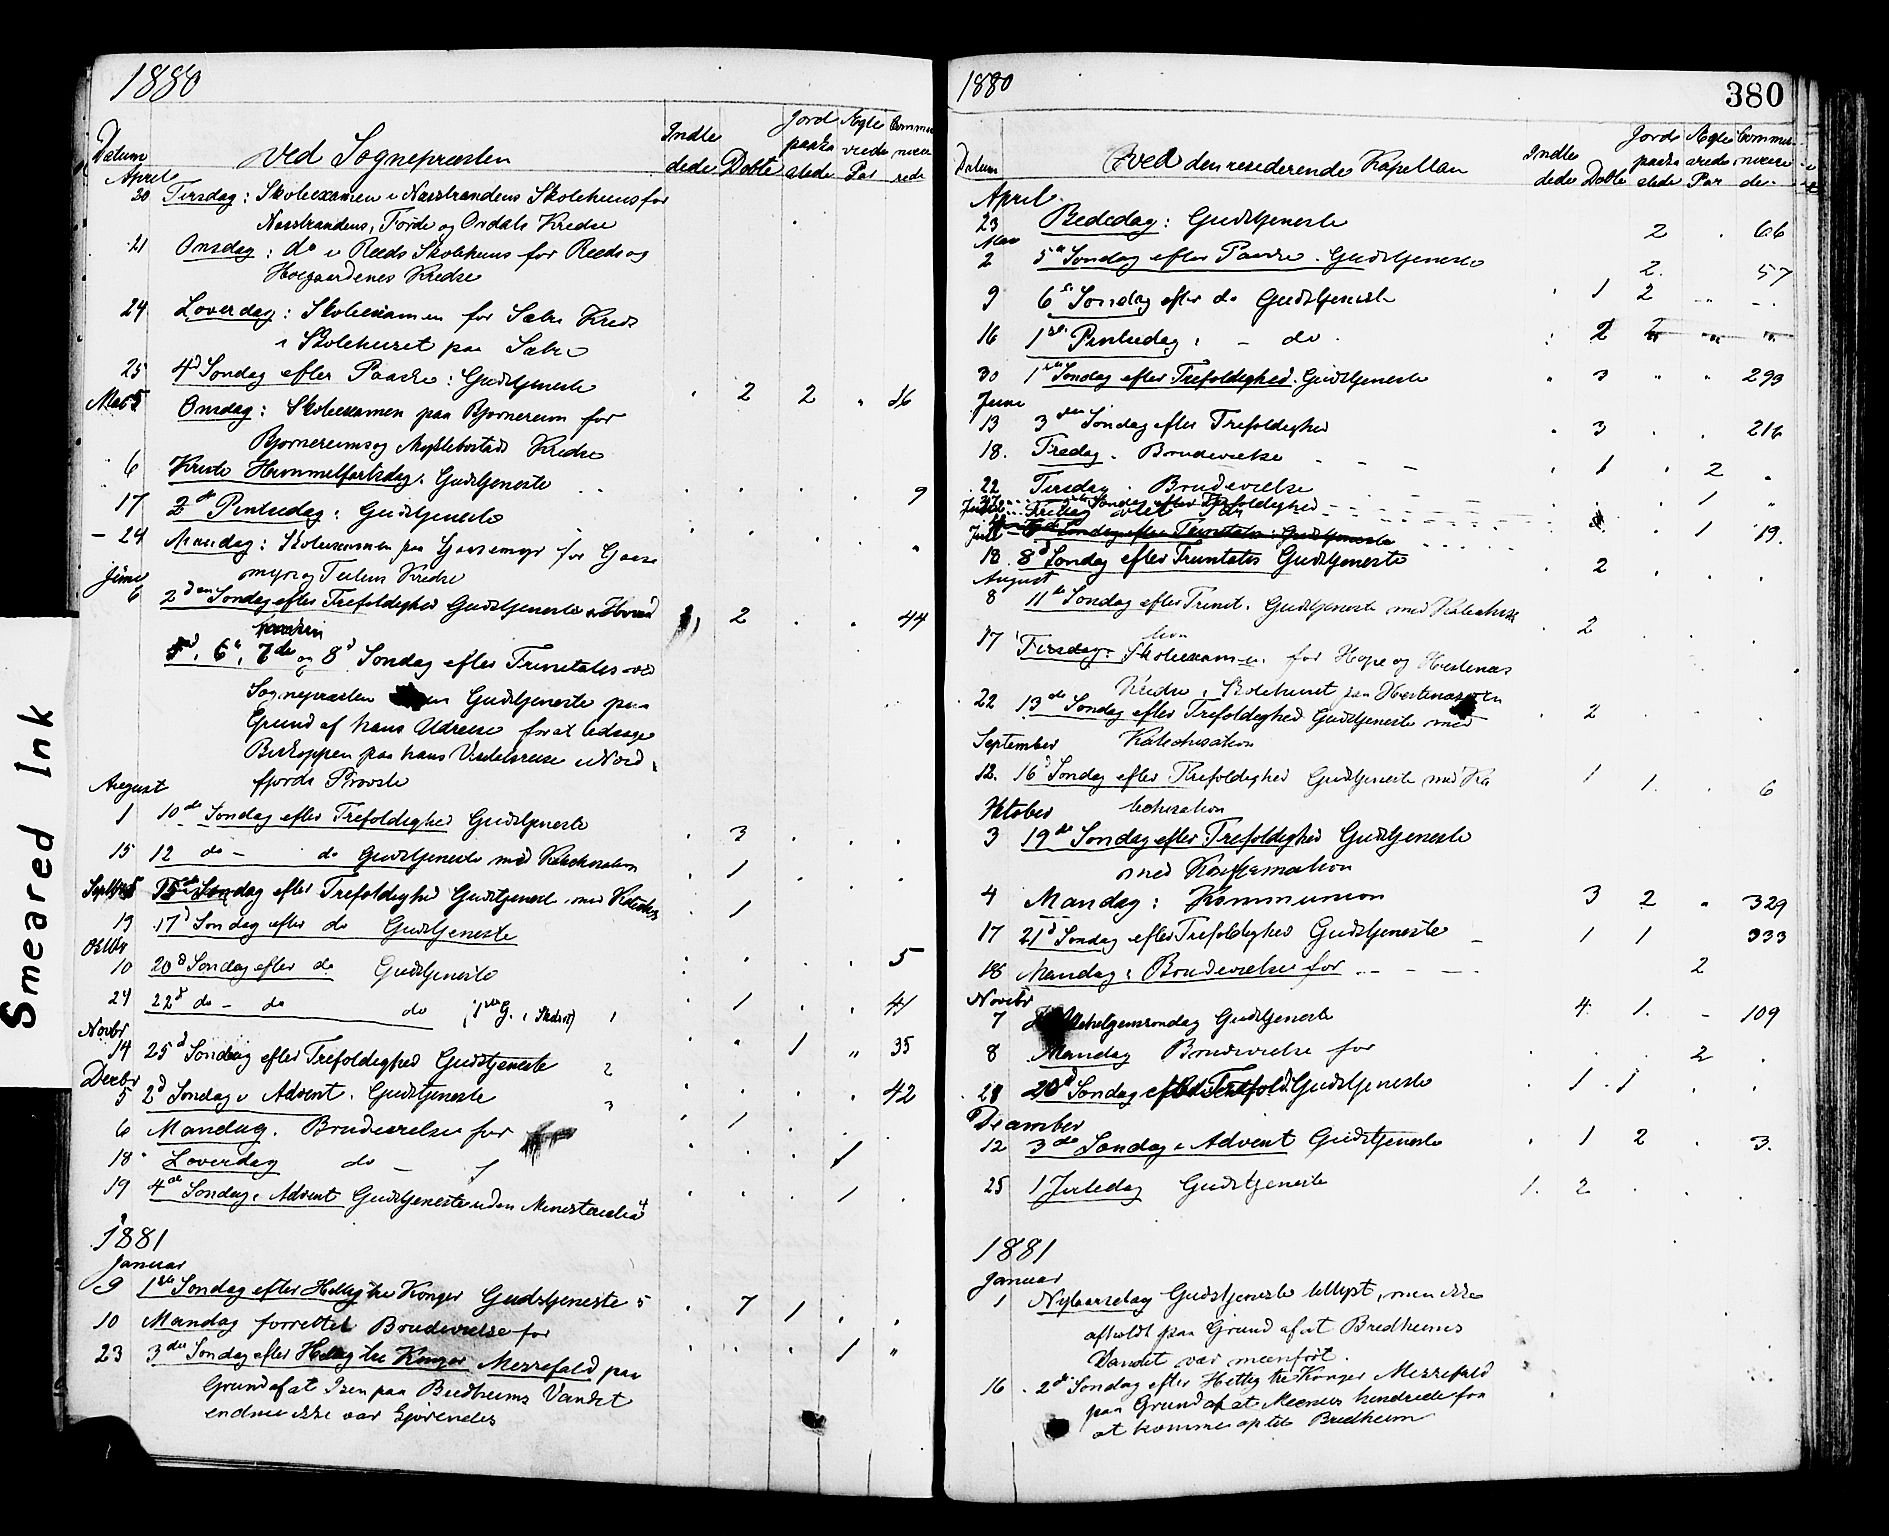 1880
Datum
ved Sognepræsten
Indle
dede
Døbte
Jord
paaka
stede
Ægte
viede
Par
Commu
nicere
rede
April
20 Tirsdag: Skoleexamen i Nosstrandens Skolehuus for
Nosstrandens, Förde og Ordals Kredse
21 Onsdag: do i Reeds Skolehuus for Reeds og
Kredse
24 Løverdag: Skoleexamen for Sæbø Kreds
i Skolehuset paa Sæbø
25 4d Søndag efter Paaske: Gudstjeneste 2 2 56
Mai 5 Onsdag: Skoleexamen paa Bjørnereim for
Bjørnereims og Myklebostads Kredse
6 Kristi Himmelfartsdag: Gudstjeneste 9
17 2d Pintsedag: Gudstjeneste
24 Mandag: Skoleexamen paa for
myr og Kredse
Juni
6 2den Søndag efter Trefoldighed Gudstjeneste 2 44
5d, 6d, 7de og 8d Søndag efter Trinitatis ved
Sognepræsten Gudstjeneste paa
Grund af hans Udreise for at ledsage
Biskoppen paa hans Visitatsreise i Nord
fjords Provsti
August
1 10de Søndag efter Trefoldighed Gudstjeneste 3
15 12 do - do Gudstjeneste med Katechisation 1
Septbr 5 15de Søndag efter Trefoldighed Gudstjeneste med 1
19 17d Søndag efter do Gudstjeneste
Oktbr
10 20d Søndag efter do Gudstjeneste 5
24 22d do - do do 1 1 41
Novbr
14 25d Søndag efter Trefoldighed Gudstjeneste 2 1 35
Decbr
5 2d Søndag i Advent. Gudstjeneste 3 42
6 Mandag. Brudevielse for 1
18 Løverdag do - 1
19 4de Søndag i Advent Gudstjeneste uden Ministerialia 4 1
1881
Januar
9 1ste Søndag efter Hellig tre Konger Gudstjeneste 5 7 1
10 Mandag forrettet Brudevielse for
23 3die Søndag efter Hellig tre Konger Messefald paa 1
Grund af at Isen paa Bredheims Vandet
endnu ikke var
1880
380
Datum
ved den residerende Kapellan
Indle
dede
Døbte
Jord
paaka
stede
Ægte
viede
Par
Commu
nicere
de
April
23 Bededag: Gudstjeneste 2 66
Mai
2 5te Søndag efter Paaske. Gudstjeneste 2 57
9 6te Søndag efter do Gudstjeneste 1 2
16 1ste Pintsedag: - do. 2
30 1ste Søndag efter Trefoldighed. Gudstjeneste 3 293
Juni
13 3die Søndag efter Trefoldighed 3 216
18. Fredag. Brudevielse 1 2
22 Tirsdag. Brudevielse 1
Søndag efter Trefoldighed
Søndag efter Trinitatis: Gudstjeneste 1 19.
Juli
18 8d Søndag efter Trinitatis Gudstjeneste 2
August
8 11te Søndag efter Trinit. Gudstjeneste med Katechisa
tion 2
17 Tirsdag: Skoleexamen for Hope og Hestenæs
Kredse i Skolehuset paa Hestenæsøren
22 13de Søndag efter Trefoldighed Gudstjeneste med 2
Katechisation
September
12. 16d Søndag efter Trefoldighed Gudstjeneste med Ka 1 1. 6
techisation
Oktober
3 19de Søndag efter Trefoldighed Gudstjeneste
med Konfirmation
4 Mandag: Kommunion 3 2 329
17 21d Søndag efter Trefoldighed Gudstjeneste 1 1 333
18 Mandag: Brudevielse for 2
Novbr
7 Allehelgenssøndag Gudstjeneste 4. 1. 109
8 Mandag Brudevielse for 2
28 Søndag Gudstjeneste 1 1
December
12 3die Søndag i Advent Gudstjeneste 1 2 3.
25 1 Juledag Gudstjeneste 1. 2
1881
Januar
1 Nytaarsdag Gudstjeneste tillyst, men ikke
afholdt paa Grund af at Bredheims
Vandet var meenført.
16 2d Søndag efter Hellig tre Konger Messefald
paa Grund af at Meenis hindrede fra
at komme op til Bredheim
Smeared Ink